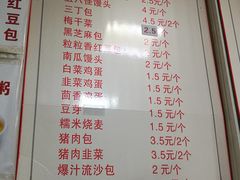 馒头 2.5元/2个
三丁包 4元/2个
梅干菜 4.5元/2个
黑芝麻包 2.5个
粒粒香红豆包 2元/个
南瓜馒头 2元/个
白菜鸡蛋 1.5元/个
韭菜鸡蛋 1.5元/个
茴香鸡蛋 1.5元/个
豆芽 1.5元/个
糯米烧麦 1.5元/个
猪肉包 3.5元/2个
猪肉韭菜 3.5元/2个
爆汁流沙包 2元/个
红豆包
粥